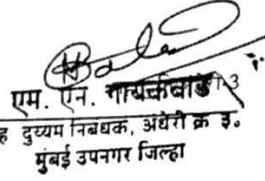 एम. एन. गायकवाड
ह दुय्यम निबंधक, अंधेरी क्र ३.
मुंबई उपनगर जिल्हा